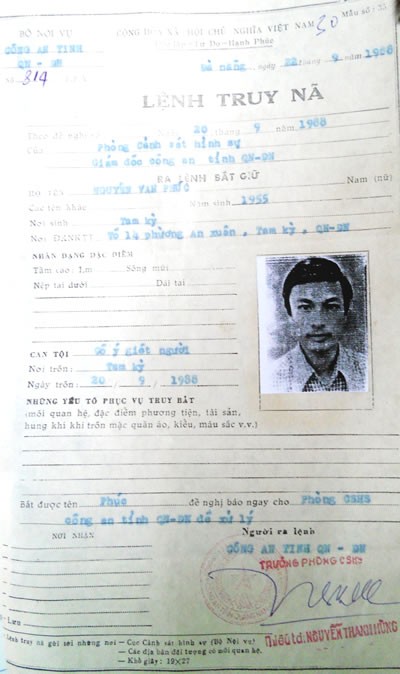 BỘ NỘI VỤ
CÔNG AN TỈNH
QN - ĐN
Số 814
CỘNG HÒA XÃ HỘI CHỦ NGHĨA VIỆT NAM
Mẫu số:
30
Độc Lập - Tự Do - Hạnh Phúc
Đà nẵng, ngày 22 tháng 9 năm 1988
LỆNH TRUY NÃ
Theo đề nghị Ngày 20 tháng 9 năm 1988
Của Phòng Cảnh sát hình sự
Giám đốc công an tỉnh QN-ĐN
RA LỆNH BẮT GIỮ
HỌ TÊN NGUYỄN VĂN PHÚC Nam (nữ)
Các tên khác Năm sinh 1955
Nơi sinh Tam kỳ
Nơi ĐKNKTT Tổ 14 phường An xuân, Tam kỳ, QN-ĐN
NHẬN DẠNG ĐẶC ĐIỂM
Tầm cao: 1.m Sống mũi
Nếp tai dưới Dái tai
CAN TỘI Cố ý giết người
Nơi trốn: Tam kỳ
Ngày trốn: 20 / 9 / 1988
NHỮNG YẾU TỐ PHỤC VỤ TRUY BẮT
(mối quan hệ, đặc điểm phương tiện, tài sản,
hung khí khi trốn mặc quần áo, kiểu, màu sắc v.v.)
Bắt được tên Phúc đề nghị báo ngay cho Phòng CSHS
công an tỉnh QN-ĐN để xử lý
NƠI NHẬN
Người ra lệnh
CÔNG AN TỈNH QN - ĐN
TRƯỞNG PHÒNG CSHS
- Lưu
Thiếu tá: NGUYỄN THANH HÙNG
Lệnh truy nã gởi tới những nơi — Cục Cảnh sát hình sự (Bộ Nội vụ)
— Các địa bàn đối tượng có mối quan hệ.
— Khổ giấy: 19×27